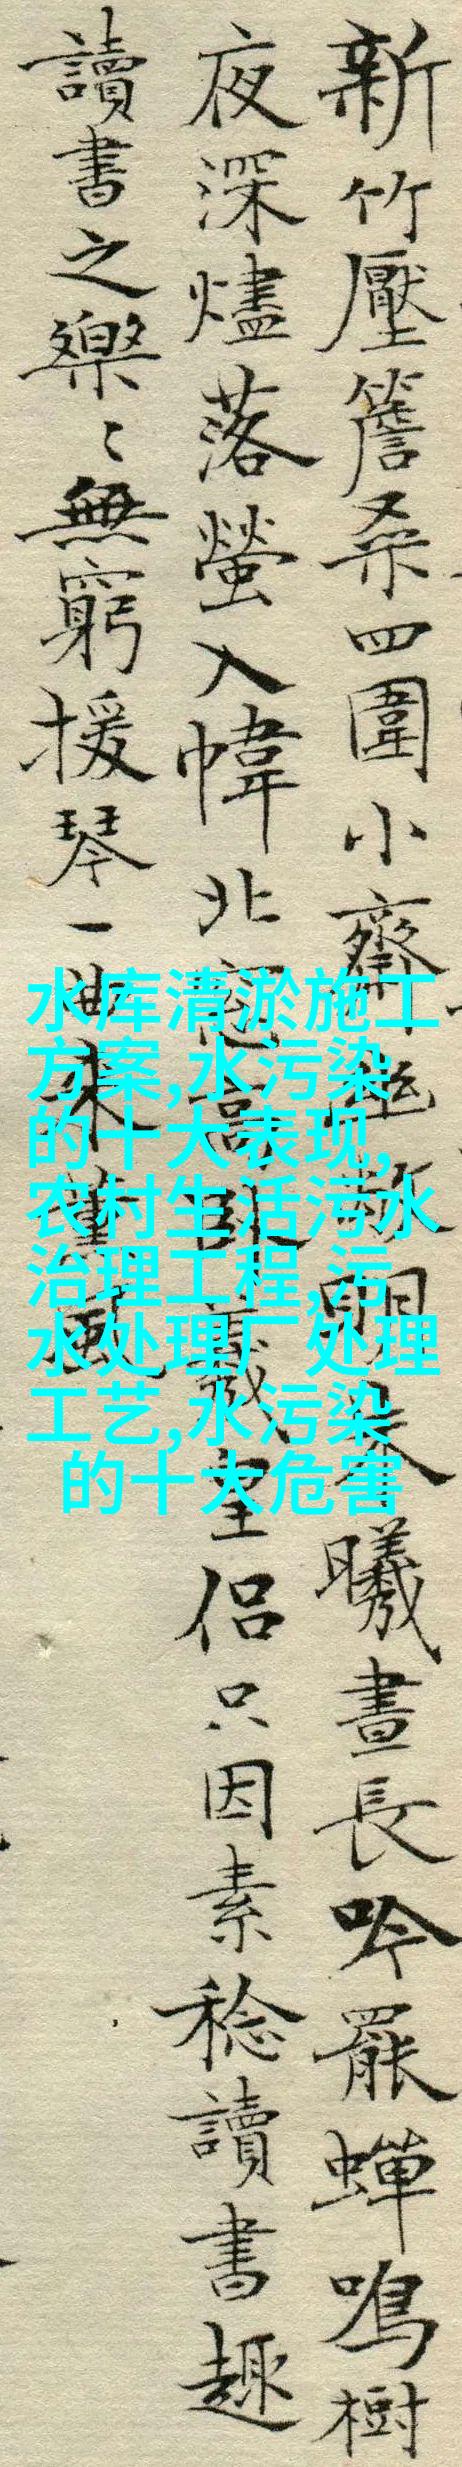 新竹壓簷桑四圍小齋幽敞明朱曦晝長吟罷蟬鳴樹
夜深燼落螢入幃北窓高臥羲皇侶只因素稔讀書趣
讀書之樂〻無窮援琴一曲來薰風
水库清淤施工
方案,水污染
的十大表现,
农村生活污水
治理工程,污
水处理厂处理
工艺,水污染
的十大危害